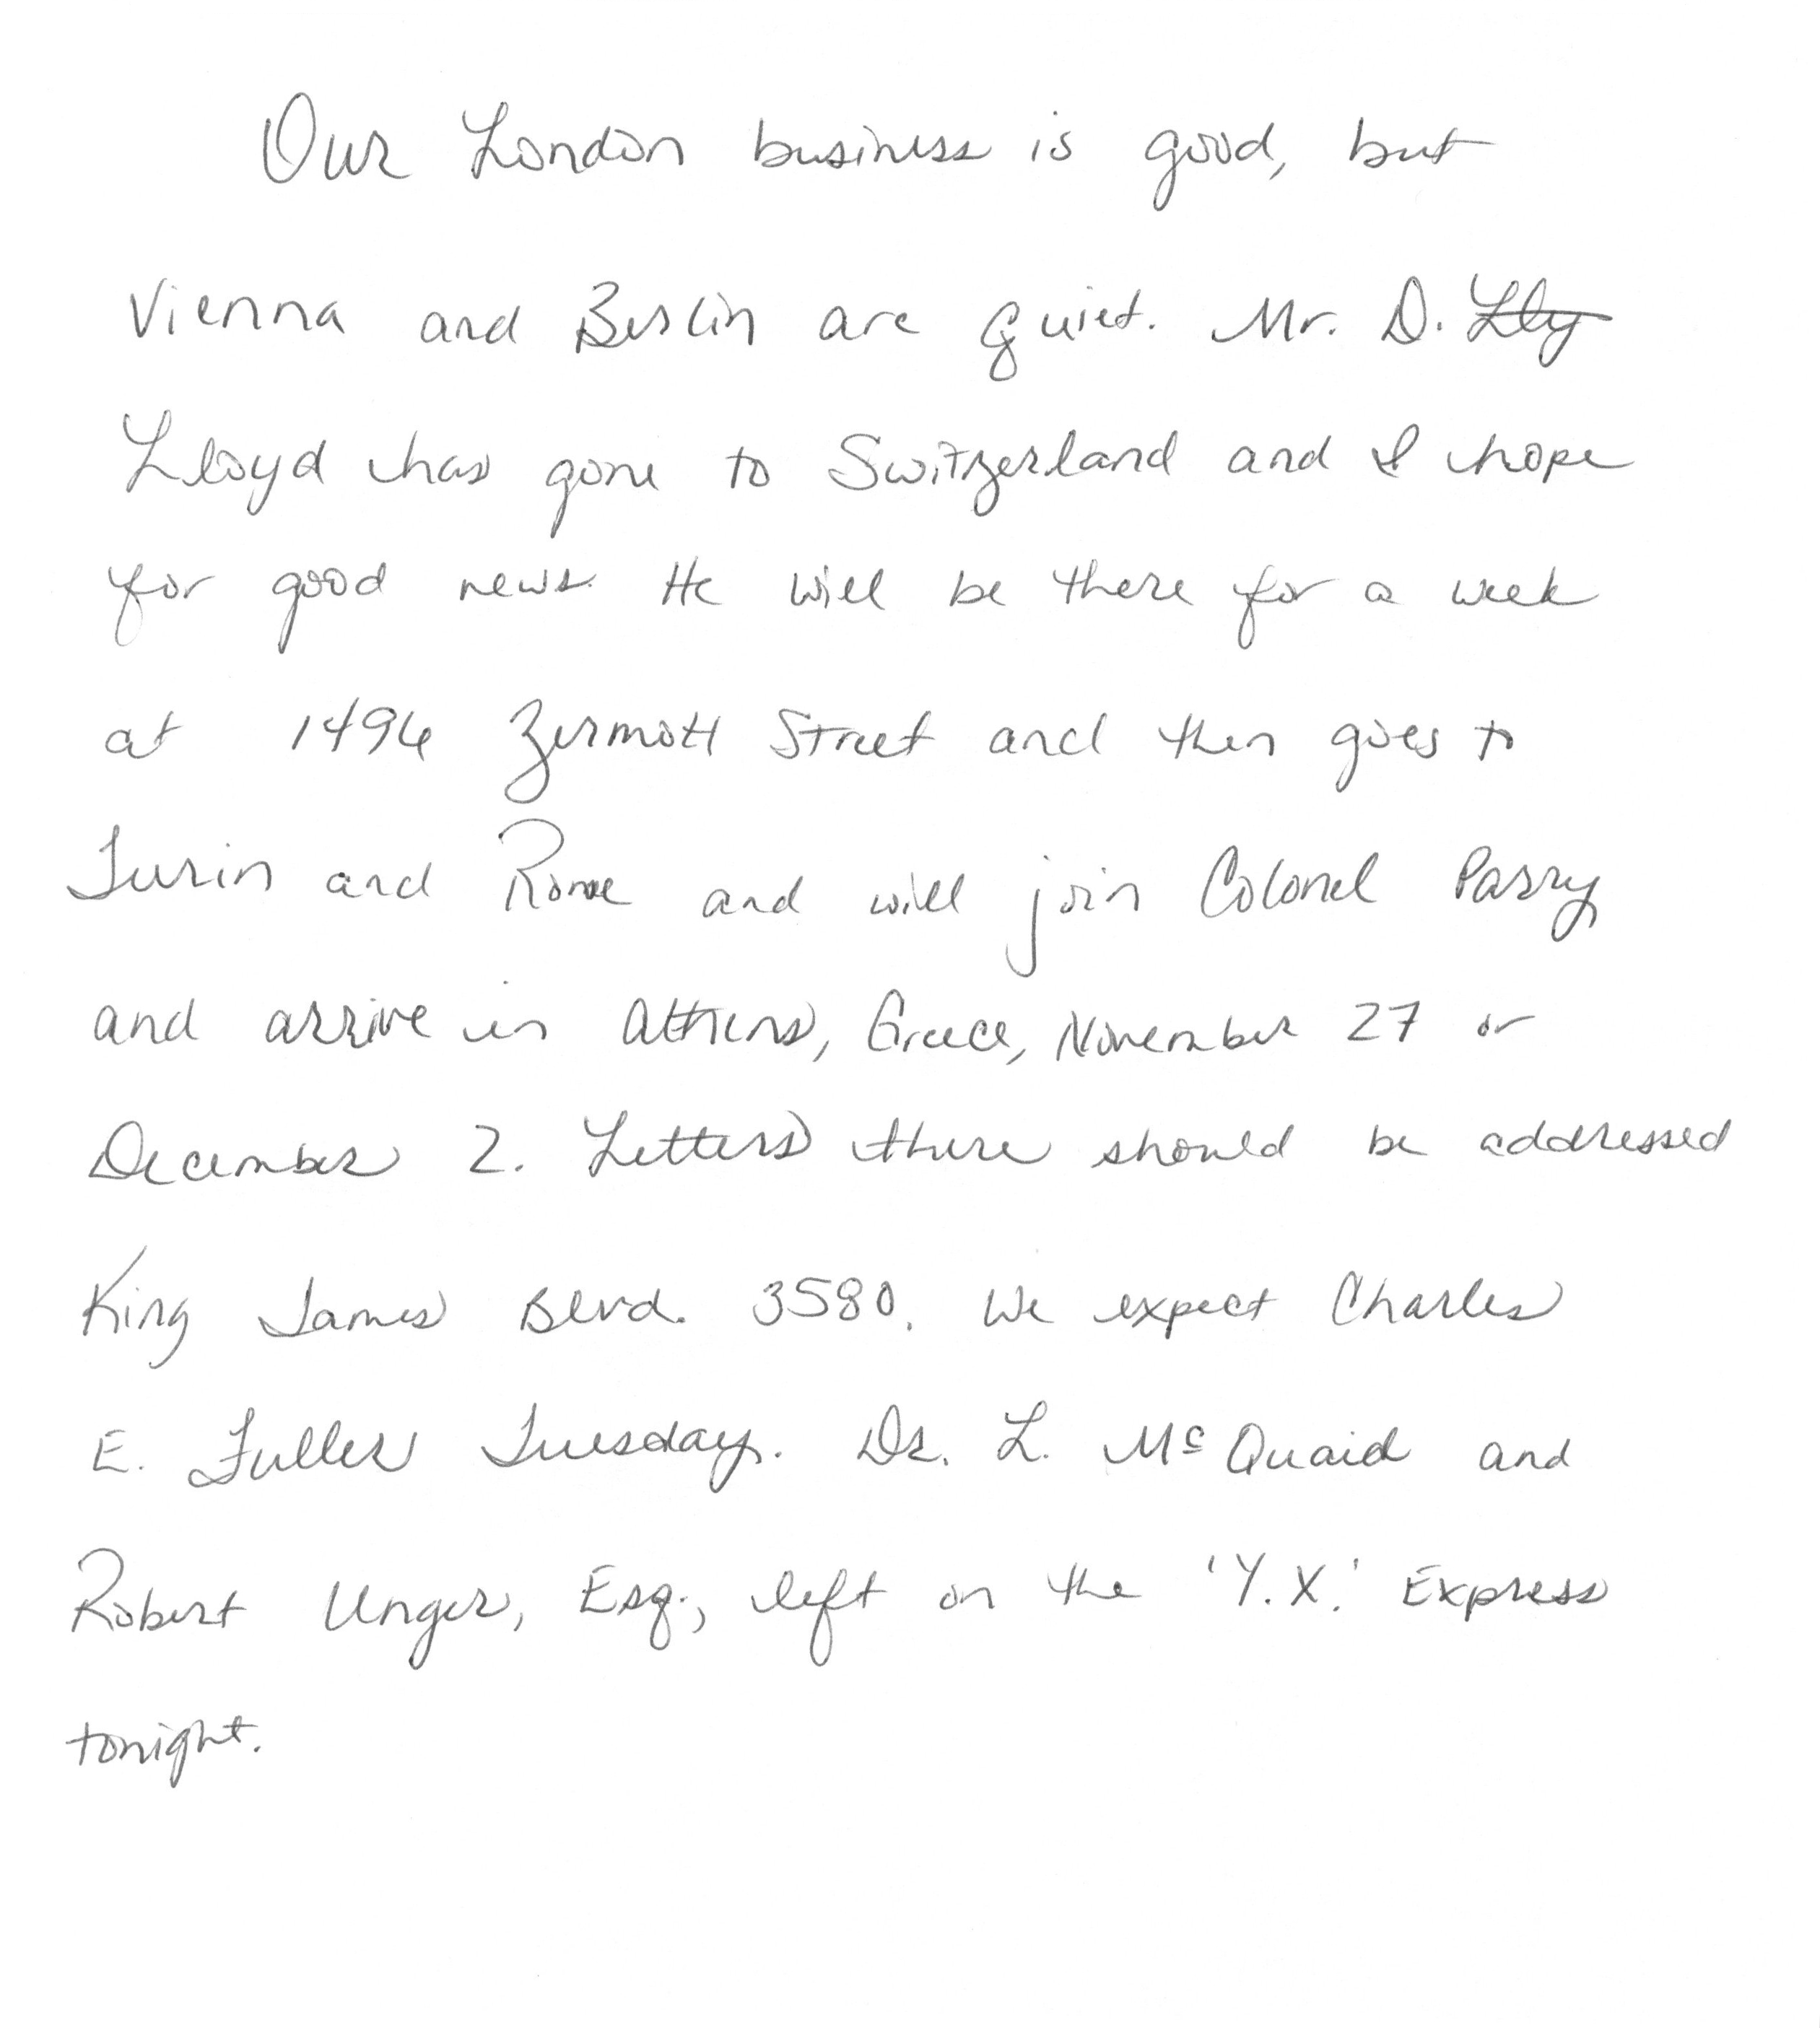 Our London business is good, but
Vienna and Berlin are quiet. Mr. D. Lly
Lloyd has gone to Switzerland and I hope
for good news. He will be there for a week
at 1496 Zermott Street and then goes to
Turin and Rome and will join Colonel Parry
and arrive in Athens, Greece, November 27 or
December 2. Letters there should be addressed
King James Blvd. 3580. We expect Charles
E. Fuller Tuesday. Dr. L. McQuaid and
Robert Unger, Esq., left on the 'Y.X.' Express
tonight.